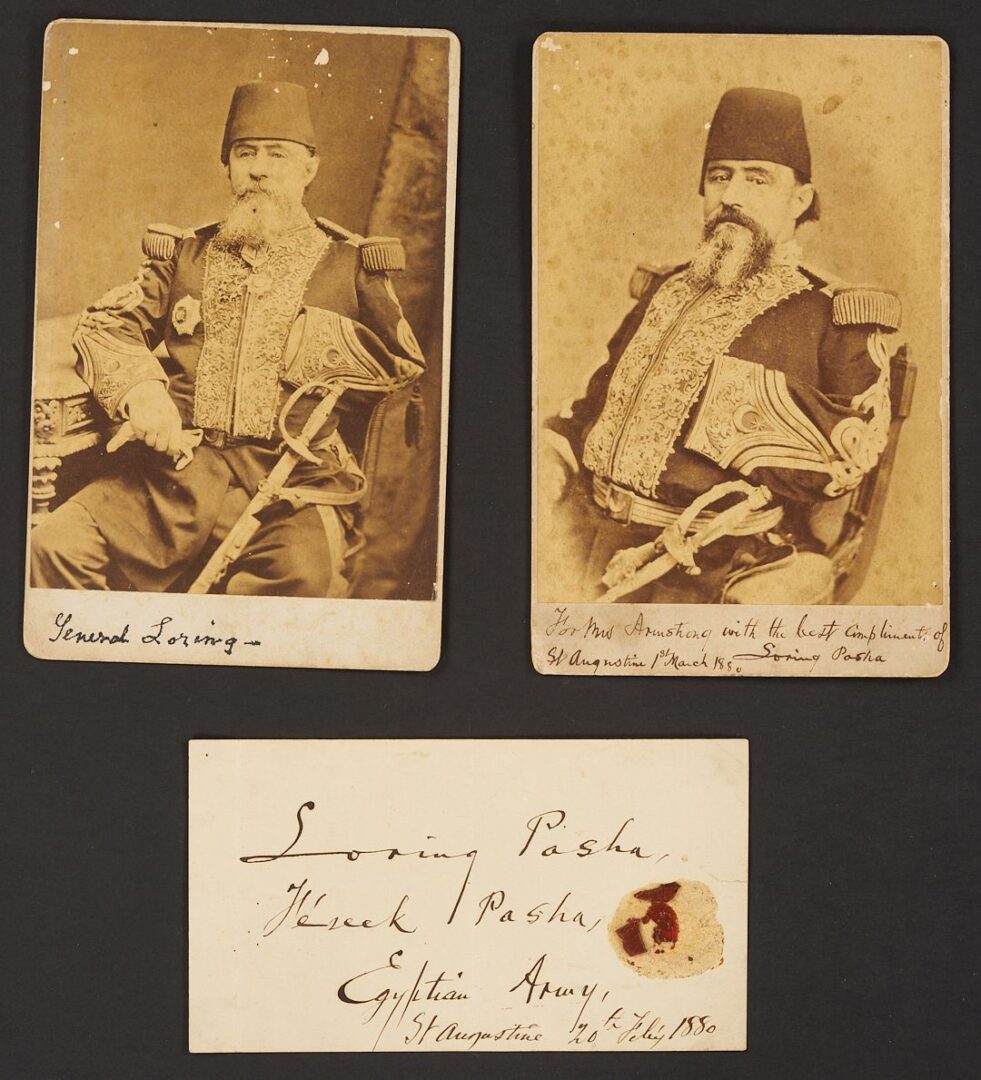 General Loring –
For Mrs Armstrong with the best compliments of
St Augustine 1st March 1880 Loring Pasha
Loring Pasha,
Féreek Pasha,
Egyptian Army,
St Augustine 20th Feby 1880